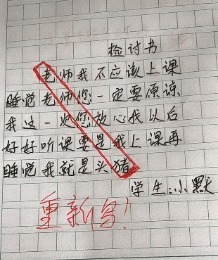 检讨书
老师我不应该上课
睡觉老师您一定要原谅
我这一次您放心我以后
好好听课要是我上课再
睡觉我就是头猪
学生:小默
重新写!